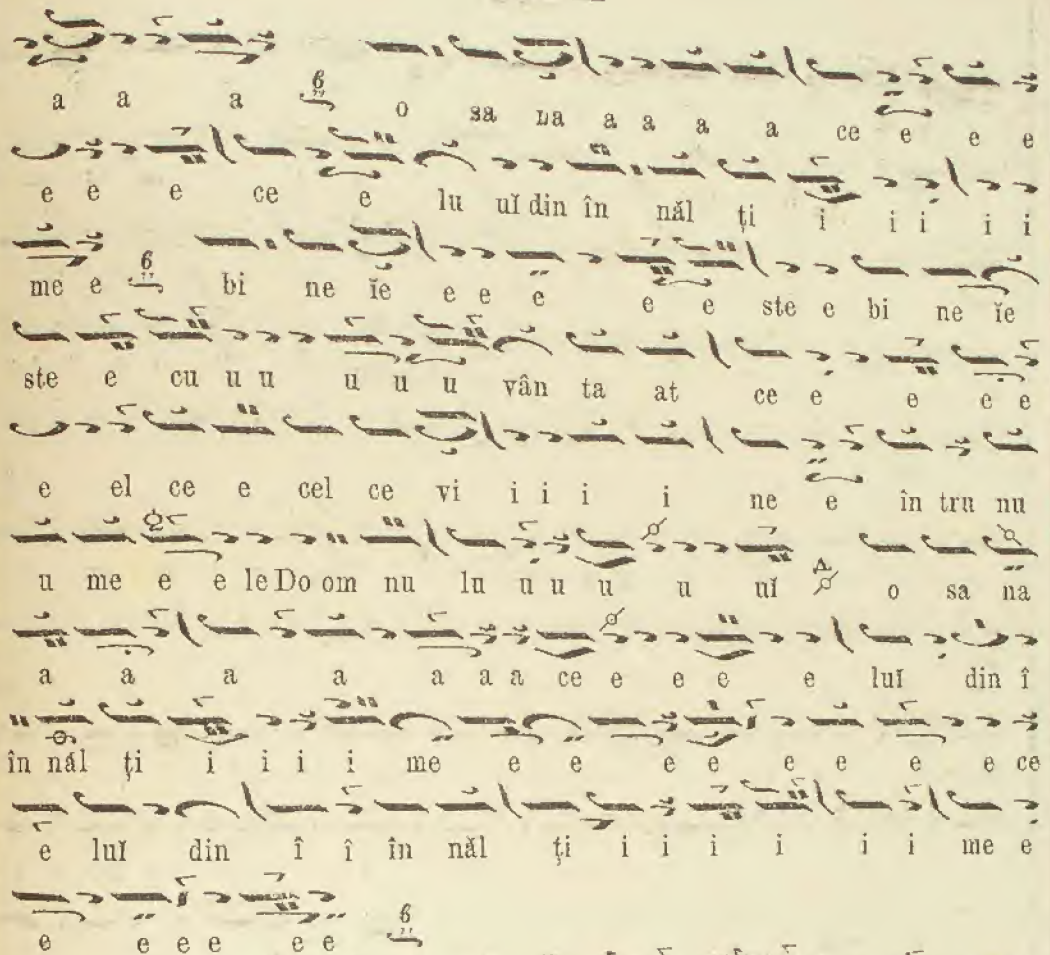 a a a o sa na a a a a ce e e e
e e e ce e lu uĭ din în năl ți i i i i i
me e bi ne ĭe e e e e e ste e bi ne ĭe
ste e cu u u u u u vân ta at ce e e e e
e el ce e cel ce vi i i i i ne e în tru nu
u me e e le Do om nu lu u u u u uĭ o sa na
a a a a a a a ce e e e e luĭ din î
în năl ți i i i i me e e e e e e e e ce
e luĭ din î î în năl ți i i i i i i me e
e e e e e e